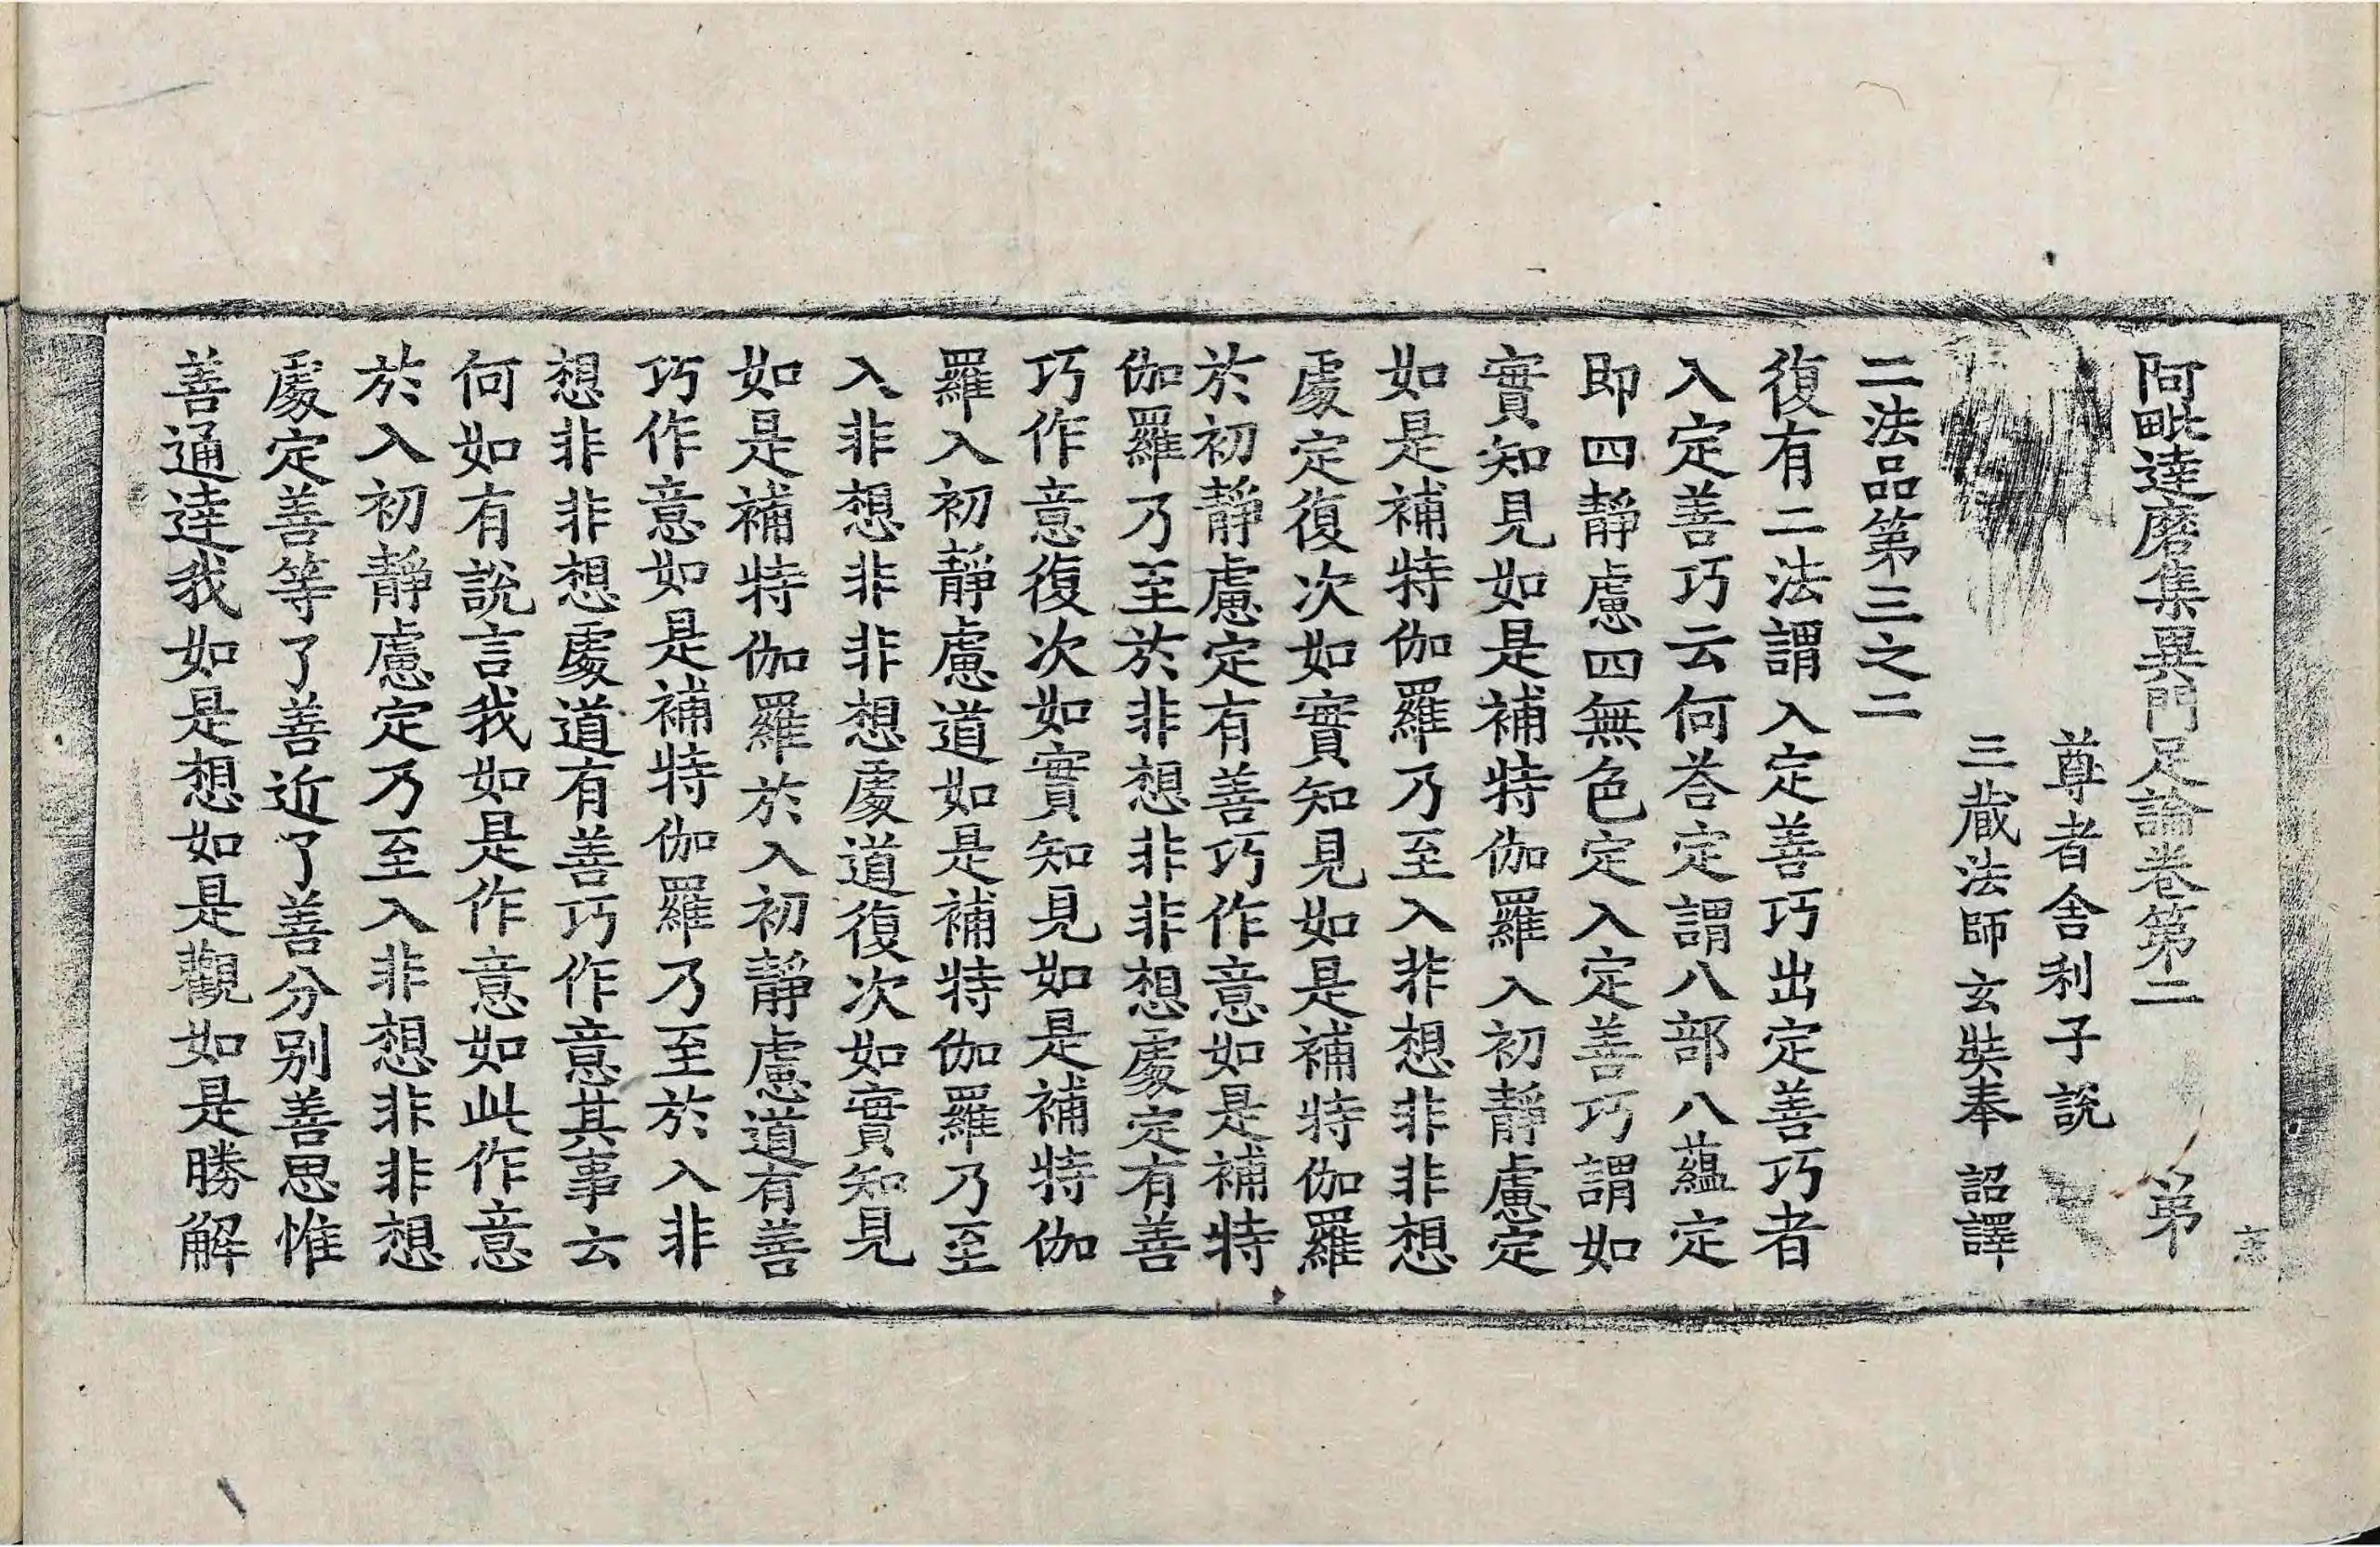 阿毗達磨集異門足論卷第二 第
尊者舍利子說
三蔵法師玄奘奉 詔譯
二法品第三之二
復有二法謂入定善巧出定善巧者
入定善巧云何荅定謂八部八蘊定
即四靜慮四無色定入定善巧謂如
實知見如是補特伽羅入初靜慮定
如是補特伽羅乃至入非想非非想
處定復次如實知見如是補特伽羅
於初靜慮定有善巧作意如是補特
伽羅乃至於非想非非想處定有善
巧作意復次如實知見如是補特伽
羅入初靜慮道如是補特伽羅乃至
入非想非非想處道復次如實知見
如是補特伽羅於入初靜慮道有善
巧作意如是補特伽羅乃至於入非
想非非想處道有善巧作意其事云
何如有說言我如是作意如此作意
於入初靜慮定乃至入非想非非想
處定善等了善近了善分别善思惟
善通達我如是想如是觀如是勝解